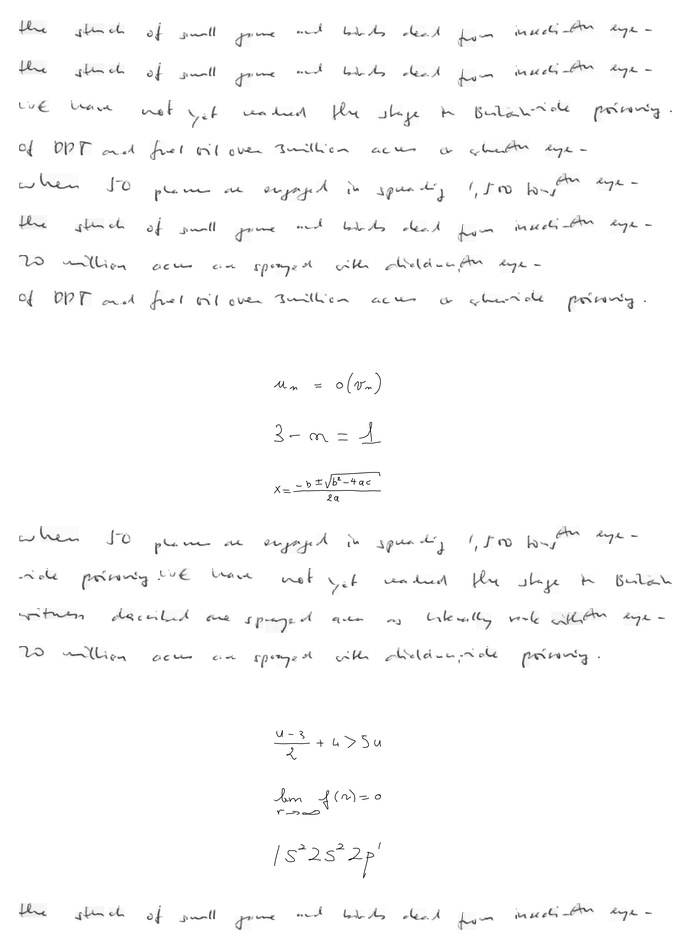 the stench of small game and birds dead from insecti-An eye-
the stench of small game and birds dead from insecti-An eye-
WE have not yet reached the stage in Britain-ide poisoning.
of DDT and fuel oil over 3million acres or when An eye-
when 50 planes are engaged in spreading 1,500 tons An eye-
the stench of small game and birds dead from insecti-An eye-
20 million acres are sprayed with dieldrin, An eye-
of DDT and fuel oil over 3million acres or when-ide poisoning.
u_n = o(v_n)
3 - n = 1
x = \frac{-b ± \sqrt{b^2 - 4ac}}{2a}
when 50 planes are engaged in spreading 1,500 tons An eye-
-ide poisoning. WE have not yet reached the stage in Britain
witness described one sprayed area as literally reek with An eye-
20 million acres are sprayed with dieldrin, -ide poisoning.
\frac{u-3}{2} + 4 > 5u
\lim_{r→∞} f(r) = 0
1s^2 2s^2 2p^1
the stench of small game and birds dead from insecti-An eye-